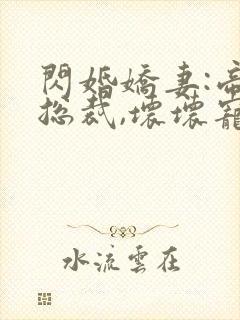 閃婚嬌妻:帝
總裁,壞壞寵
水流雲在